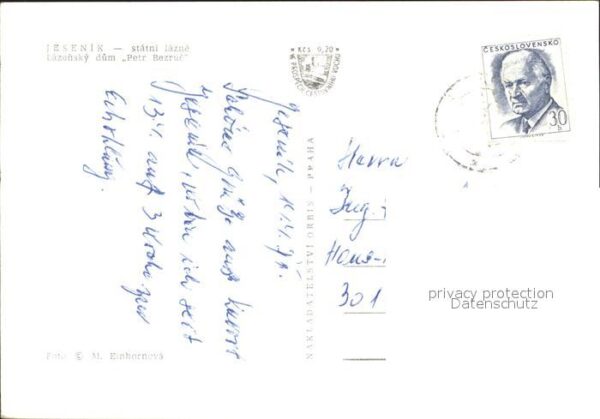 JESENÍK — státní lázně
Lázeňský dům „Petr Bezruč“
KČS 0,20
ČESKOSLOVENSKO
30 h
Jeseník,
Schöne Grüße aus Kurort
Jeseník, wo bin ich seit
13/4. auf 3 Wochen zur
Erholung.
NAKLADATELSTVÍ ORBIS — PRAHA
Herrn
Ing.
Hans-
301
privacy protection
Datenschutz
Foto © M. Einhornová